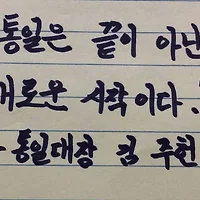 통일은 끝이 아닌
새로운 시작이다.
통일대장 김 주헌